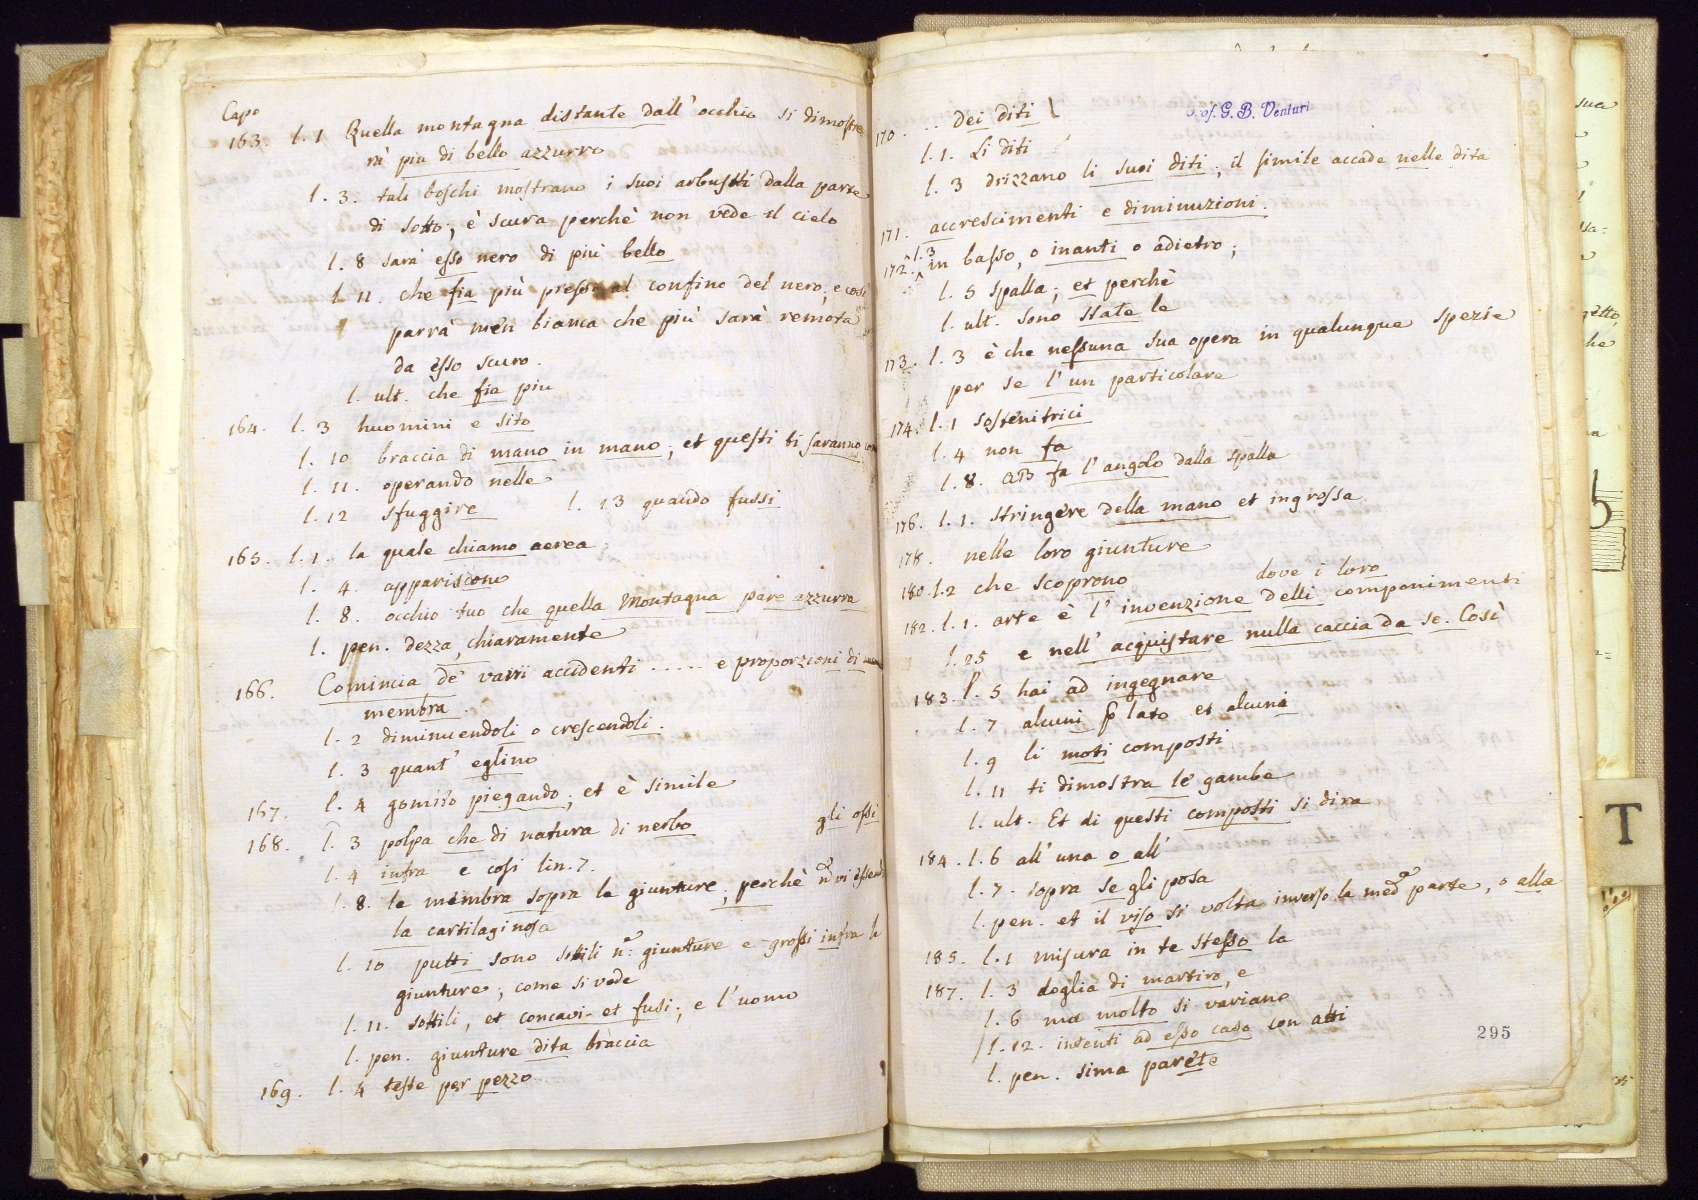 Capo
163. l. 1 Quella montagna distante dall' occhio si dimostre
rà piu di bello azzurro
l. 3. tali boschi mostrano i suoi arbusti dalla parte
di sotto; è scura perchè non vede il cielo
l. 8 sarà esso nero di più bello
l. 11. che fia più presso al confino del nero, e così
parrà men bianca che più sarà remota
da esso scuro.
l. ult. che fia piu
164. l. 3 huomini e sito
l. 10 braccia di mano in mano; et questi ti saranno
l. 11. operando nelle
l. 12 sfuggire l. 13 quando fussi
165. l. 1. la quale chiamo aerea
l. 4. appariscono
l. 8. occhio tuo che quella Montagna pare azzurra
l. pen. dezza, chiaramente
166. Comincia de' varii accidenti ..... e proporzioni di
membra.
l. 2 diminuendoli o crescendoli.
l. 3 quant' eglino
167. l. 4 gomito piegando; et è simile
168. l. 3 polpa che di natura di nerbo gli ossi
l. 4 infra e così lin. 7.
l. 8. le membra sopra le giunture; perchè nō vi essendo
la cartilaginosa
l. 10 putti sono sottili nē giunture e grossi infra le
giunture; come si vede
l. 11. sottili, et concavi et fusi; e l'uomo
l. pen. giunture dita braccia
169. l. 4 teste per pezzo
Prof. G. B. Venturi
170. ... Dei diti
l. 1. Li diti
l. 3 drizzano li suoi diti; il simile accade nelle dita
171. accrescimenti e diminuzioni.
172. l. 3 in basso, o inanti o adietro;
l. 5 spalla; et perchè
l. ult. sono state le
173. l. 3 è che nessuna sua opera in qualunque spezie
per se l'un particolare
174. l. 1 sostenitrici
l. 4 non fa
l. 8. AB fa l'angolo dalla spalla
176. l. 1. stringere della mano et ingrossa
178. nelle loro giunture
180. l. 2 che scoprono dove i loro
182. l. 1. arte è l'invenzione delli componimenti
l. 25 e nell' acquistare nulla caccia da se. Così
183. l. 5 hai ad ingegnare
l. 7 alcuni p lato et alcuni
l. 9 li moti composti
l. 11 ti dimostra le gambe
l. ult. Et di questi composti si dira
184. l. 6 all' una o all'
l. 7. sopra se gli posa
l. pen. et il viso si volta inverso la med.a parte, o alla
185. l. 1 misura in te stesso la
187. l. 3 doglia di martiro, e
l. 6 ma molto si variano
l. 12. intenti ad esso caso con atti
l. pen. sima parete
295
T